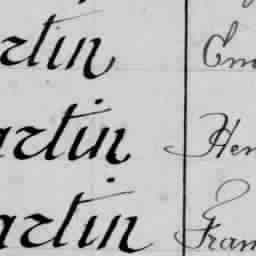 rtin Em
artin Hen
artin Fran